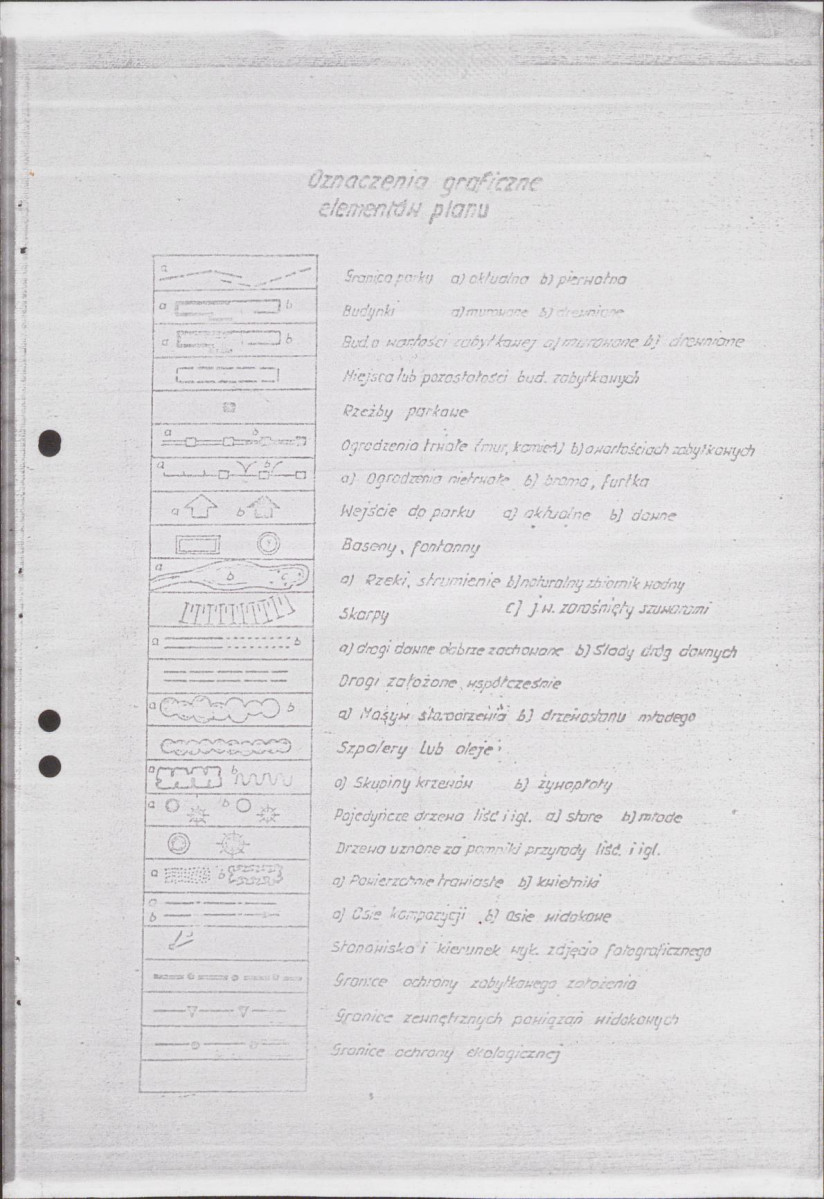 Oznaczenia graficzne
elementów planu
a
Granica parku a) aktualna b) pierwotna
a b
Budynki a) murowane b) drewniane
a b
Bud. o wartości zabytkowej a) murowane b) drewniane
Miejsca lub pozostałości bud. zabytkowych
Rzeźby parkowe
a b
Ogrodzenia trwałe (mur, kamień) b) o wartościach zabytkowych
a b
a) Ogrodzenia nietrwałe b) brama, furtka
a b
Wejście do parku a) aktualne b) dawne
Baseny, fontanny
a b c
a) Rzeki, strumienie b) naturalny zbiornik wodny
Skarpy c) j.w. zarośnięty szuwarami
a b
a) drogi dawne dobrze zachowane b) Ślady dróg dawnych
Drogi założone współcześnie
a b
a) Masyw starodrzewia b) drzewostanu młodego
Szpalery lub aleje
a b
a) Skupiny krzewów b) żywopłoty
a b
Pojedyńcze drzewa liść i igl. a) stare b) młode
Drzewa uznane za pomniki przyrody liść. i igl.
a b
a) Powierzchnie trawiaste b) kwietniki
a
b
a) Osie kompozycji b) Osie widokowe
Stanowisko i kierunek wyk. zdjęcia fotograficznego
Granice ochrony zabytkowego założenia
Granice zewnętrznych powiązań widokowych
Granice ochrony ekologicznej